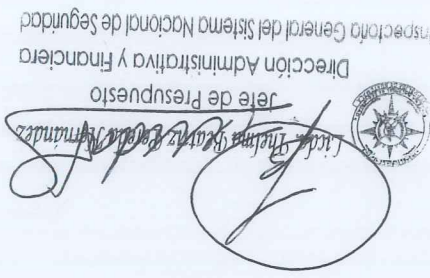 Licda. Thelma Beatriz Hernández
Jefe de Presupuesto
Dirección Administrativa y Financiera
Inspectoría General del Sistema Nacional de Seguridad